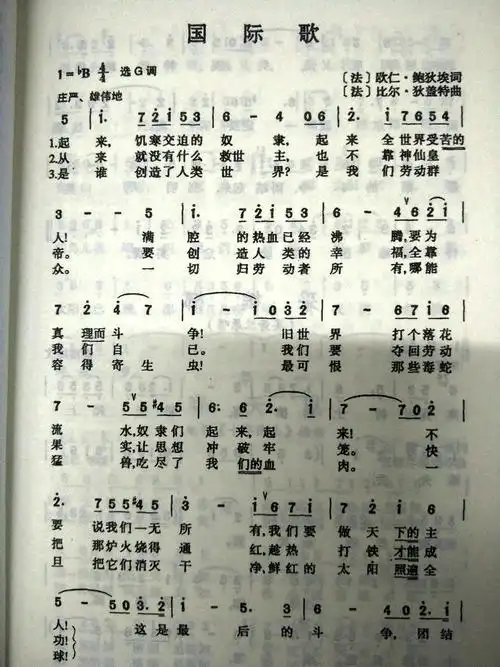 国 际 歌
1=♭B 4/4 选G调
〔法〕欧仁·鲍狄埃词
庄严、雄伟地
〔法〕比尔·狄盖特曲
5 | i· 7 2 i 5 3 | 6 - 4 0 6 | 2· i 7 6 5 4 |
1.起 来, 饥寒交迫的 奴 隶, 起 来 全世界受苦的
2.从 来 就没有什么 救世 主, 也 不 靠神仙皇
3.是 谁 创造了人类 世 界? 是 我 们劳动群
3 - - 5 | i· 7 2 i 5 3 | 6 - 4 6 2 i |
人! 满 腔 的热血已经 沸 腾,要为
帝。 要 创 造人类的幸 福,全靠
众。 一 切 归劳动者所 有,哪能
7 2 4 7 | i - i 0 3 2 | 7 - 6 7 i 6 |
真 理而斗 争! 旧世 界 打个落花
我 们 自 己。 我们 要 夺回劳动
容 得 寄 生 虫! 最可 恨 那些毒蛇
7 - 5 5 #4 5 | 6· 6 2· i | 7 - 7 0 2 |
流 水,奴隶们 起 来,起 来! 不
果 实,让思想 冲 破牢 笼。 快
猛 兽,吃尽了 我 们的血 肉。 一
2· 7 5 5 #4 5 | 3 - i 6 7 i | 7 2 i 6 |
要 说我们一无 所 有,我们要 做 天 下的主
把 那炉火烧得 通 红,趁热 打 铁 才能成
旦 把它们消灭 干 净,鲜红的 太 阳 照遍全
5 - 5 0 3· 2 | i - 5· 3 | 6 - 4 0 2· i |
人! 这是 最 后 的 斗 争, 团结
功!
球!